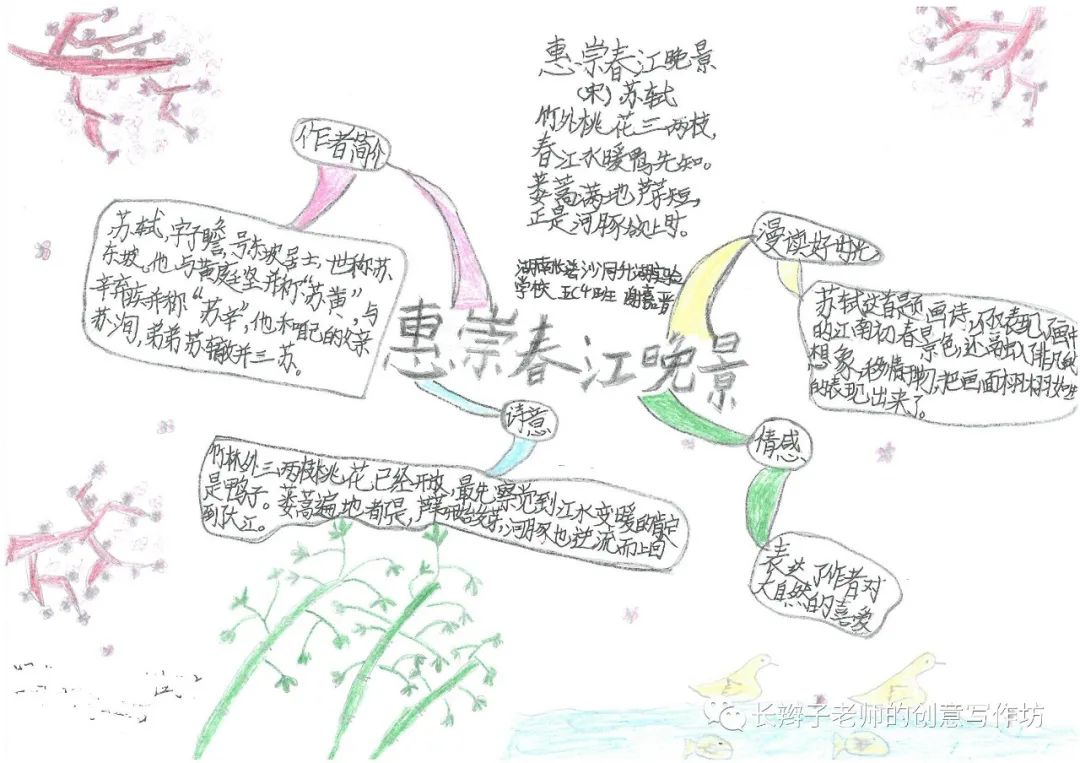 惠崇春江晚景
(宋)苏轼
竹外桃花三两枝,
春江水暖鸭先知。
蒌蒿满地芦芽短,
正是河豚欲上时。
学校 五(4)班 谢嘉晋
作者简介
苏轼,字子瞻,号东坡居士,世称苏
东坡。他与黄庭坚并称“苏黄”,与
辛弃疾并称“苏辛”,他和自己的父亲
苏洵,弟弟苏辙并三苏。
惠崇春江晚景
漫读好时光
苏轼这首题画诗,不仅表现画中
的江南初春景色,还
想象,移情于物,把画面栩栩如生
的表现出来了。
诗意
竹林外三两枝桃花已经开放,最先察觉到江水变暖的肯定
是鸭子。蒌蒿遍地都是,芦芽开始发芽,河豚也逆流而上回
到大江。
情感
表达了作者对
大自然的喜爱
长辫子老师的创意写作坊